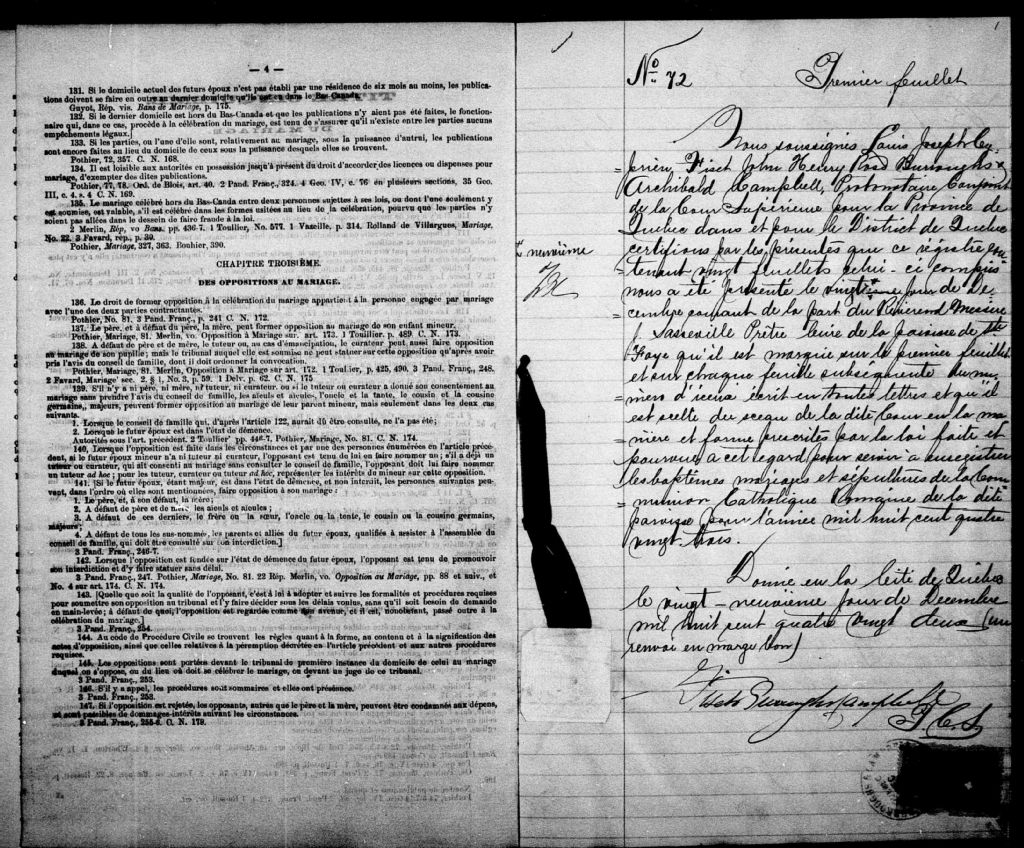 — 4 —
131. Si le domicile actuel des futurs époux n'est pas établi par une résidence de six mois au moins, les publica-
tions doivent se faire en outre au dernier domicile qu'ils ont eu dans le Bas-Canada.
Guyot, Rép. vis. Bans de Mariage, p. 175.
132. Si le dernier domicile est hors du Bas-Canada et que les publications n'y aient pas été faites, le fonction-
naire qui, dans ce cas, procède à la célébration du mariage, est tenu de s'assurer qu'il n'existe entre les parties aucuns
empêchements légaux.
133. Si les parties, ou l'une d'elles, sont, relativement au mariage, sous la puissance d'autrui, les publications
sont encore faites au lieu du domicile de ceux sous la puissance desquels elles se trouvent.
Pothier, 72, 357. C. N. 168.
134. Il est loisible aux autorités en possession jusqu'à présent du droit d'accorder des licences ou dispenses pour
mariage, d'exempter des dites publications.
Pothier, 77, 78. Ord. de Blois, art. 40. 2 Pand. Franç., 324. 4 Geo. IV, c. 76 en plusieurs sections, 35 Geo.
III, c. 4, s. 4 C. N. 169.
135. Le mariage célébré hors du Bas-Canada entre deux personnes sujettes à ses lois, ou dont l'une seulement y
est soumise, est valable, s'il est célébré dans les formes usitées au lieu de la célébration, pourvu que les parties n'y
soient pas allées dans le dessein de faire fraude à la loi.
2 Merlin, Rép, vo Bans. pp. 436-7. 1 Toullier, No. 577. 1 Vazeille, p. 314. Rolland de Villargues, Mariage,
No. 22. 3 Favard, rép., p. 39.
Pothier, Mariage, 327, 363. Bouhier, 390.
CHAPITRE TROISIÈME.
DES OPPOSITIONS AU MARIAGE.
136. Le droit de former opposition à la célébration du mariage appartient à la personne engagée par mariage
avec l'une des deux parties contractantes.
Pothier, No. 81. 3 Pand. Franç., p. 241 C. N. 172.
137. Le père, et à défaut du père, la mère, peut former opposition au mariage de son enfant mineur.
Pothier, Mariage, 81. Merlin, vo. Opposition à Mariage sur. art. 173. 1 Touillier. p. 489. C. N. 173.
138. A défaut de père et de mère, le tuteur ou, au cas d'émancipation, le curateur peut aussi faire opposition
au mariage de son pupille; mais le tribunal auquel elle est soumise ne peut statuer sur cette opposition qu'après avoir
pris l'avis du conseil de famille, dont il doit ordonner la convocation.
Pothier, Mariage, 81. Merlin, Opposition à Mariage sur art. 172. 1 Toulier, p. 425, 490. 3 Pand. Franç., 248.
2 Favard, Mariage' sec. 2. § 1, No. 3, p. 59. 1 Delv. p. 62. C. N. 175
139. S'il n'y a ni père, ni mère, ni tuteur, ni curateur, ou si le tuteur ou curateur a donné son consentement au
mariage sans prendre l'avis du conseil de famille, les aïeuls et aïeules, l'oncle et la tante, le cousin et la cousine
germains, majeurs, peuvent former opposition au mariage de leur parent mineur, mais seulement dans les deux cas
suivants.
1. Lorsque le conseil de famille qui, d'après l'article 122, aurait dû être consulté, ne l'a pas été;
2. Lorsque le futur époux est dans l'état de démence.
Autorités sous l'art. précédent. 2 Toullier pp. 446-7. Pothier, Mariage, No. 81. C. N. 174.
140. Lorsque l'opposition est faite dans les circonstances et par une des personnes énumérées en l'article précé-
dent, si le futur époux mineur n'a ni tuteur ni curateur, l'opposant est tenu de lui en faire nommer un; s'il a déjà un
tuteur ou curateur, qui ait consenti au mariage sans consulter le conseil de famille, l'opposant doit lui faire nommer
un tuteur ad hoc; pour les tuteur, curateur ou tuteur ad hoc, représenter les intérêts de mineur sur cette opposition.
141. [Si le futur époux, étant majeur, est dans l'état de démence, et non interdit, les personnes suivantes peu-
vent, dans l'ordre où elles sont mentionnées, faire opposition à son mariage:
1. Le père, et, à son défaut, la mère;
2. A défaut de père et de mère les aïeuls et aïeules;
3. A défaut de ces derniers, le frère ou la sœur, l'oncle ou la tante, le cousin ou la cousine germains,
majeurs;
4. A défaut de tous les sus-nommés, les parents et alliés du futur époux, qualifiés à assister à l'assemblée du
conseil de famille, qui doit être consulté sur son interdiction.]
3 Pand. Franç., 246-7.
142. Lorsque l'opposition est fondée sur l'état de démence du futur époux, l'opposant est tenu de promouvoir
son interdiction et d'y faire statuer sans délai.
3 Pand. Franç., 247. Pothier, Mariage, No. 81. 22 Rép. Merlin, vo. Opposition au Mariage, pp. 88 et suiv., et
No. 4 sur art 174. C. N. 174.
143. [Quelle que soit la qualité de l'opposant, c'est à lui à adopter et suivre les formalités et procédures requises
pour soumettre son opposition au tribunal et l'y faire décider sous les délais voulus, sans qu'il soit besoin de demande
en main-levée; à défaut de quoi, l'opposition est regardée comme non avenue, et il est, nonobstant, passé outre à la
célébration du mariage.]
3 Pand. Franç., 254.
144. Au code de Procédure Civile se trouvent les règles quant à la forme, au contenu et à la signification des
actes d'opposition, ainsi que celles relatives à la péremption décrétée en l'article précédent et aux autres procédures
requises.
145. Les oppositions sont portées devant le tribunal de première instance du domicile de celui au mariage
duquel on s'oppose, ou du lieu où doit se célébrer le mariage, ou devant un juge de ce tribunal.
3 Pand. Franç., 253.
146. S'il y a appel, les procédures sont sommaires et elles ont présence.
3 Pand. Franç., 253.
147. Si l'opposition est rejetée, les opposants, autres que le père et la mère, peuvent être condamnés aux dépens,
et sont passibles de dommages-intérêts suivant les circonstances.
3 Pand. Franç., 255-6. C. N. 179.
1
No. 72 Premier feuillet
Nous soussignés Louis Joseph Cy-
prien Fiset John Henry Ross Burroughs &
Archibald Campbell, Protonotaire Conjoint
de la Cour Supérieure pour la Province de
Québec dans et pour le District de Québec
certifions par les présentes que ce régistre con-
tenant vingt feuillets celui-ci compris
nous a été présenté le vingt jour de Dé-
cembre courant de la part du Révérend Messire
Sasseville Prêtre Curé de la paroisse de Ste
Foye qu'il est marqué sur le premier feuillet
et sur chaque feuille subséquente du nu-
méro d'icelui écrit en toutes lettres et qu'il
est scellé du sceau de la dite Cour en la ma-
nière et forme prescrites par la loi faite et
pourvue à cet égard pour servir à enregistrer
les baptêmes mariages et sépultures de la Com-
munion Catholique Romaine de la dite
paroisse pour l'année mil huit cent quatre
vingt-trois.
Donné en la Cité de Québec
le vingt-neuvième jour de Décembre
mil huit cent quatre vingt deux (un
renvoi en marge bon)
Fiset Burroughs Campbell
P. C. S.
neuvième